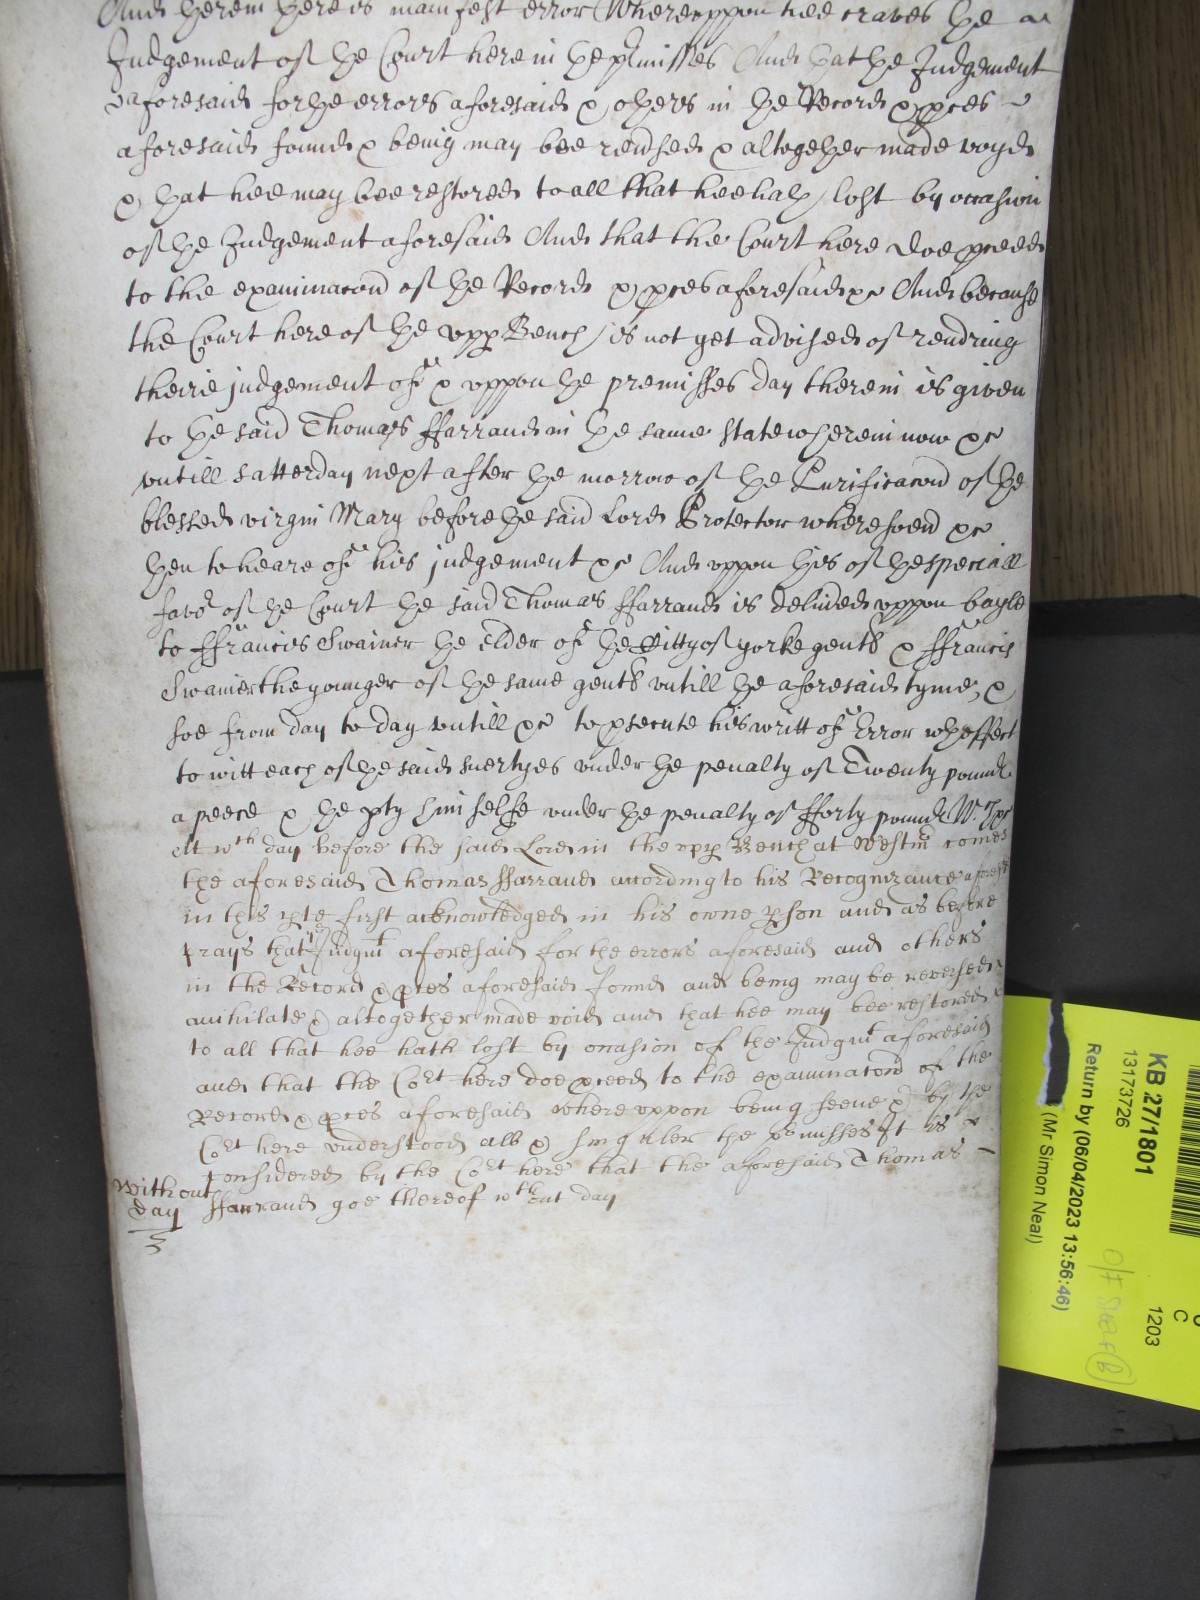 And herein there is manifest error Whereuppon hee craves the
Judgement of the Court here in the p̃misses And that the Judgement
aforesaid for the errors aforesaid & others in the Record & pces
aforesaid found & being may bee rev̾sed & altogether made voyd
& that hee may bee restored to all that hee hath lost by occasion
of the Judgement aforesaid And that the Court here doe pceed
to the examinacon̄ of the Record & pces aforesaid &c And because
the Court here of the upp Bench is not yet advised of rendring
theire judgement of & uppon the premisses day therein is given
to the said Thomas ffarrand in the same state wherein now &c
untill Satterday next after the morrow of the Purificacon̄ of the
blessed virgin Mary before the said Lord Protector wheresoev̾ &c
then to heare of his judgement &c And uppon this of the speciall
favo^r of the Court the said Thomas ffarrand is deliv̾ed uppon bayle
to ffrancis Swainer the Elder of the Citty of yorke gent & ffrancis
Swainer the younger of the same gent untill the aforesaid tyme, &
soe from day to day untill &c to psecute his writt of Error wth effect
to witt each of the said suertyes under the penalty of Twenty pounds
a peece & the pty himselfe under the penalty of fforty pounds
At w^th day before the said Lord in the upp Bench at Westm̃ comes
the aforesaid Thomas ffarrand according to his Recognizance aforesd
in this pte first acknowledged in his owne pson and as before
prays that y^e Judgm^t aforesaid for the errors aforesaid and others
in the Record & pces aforesaid found and being may be reversed
anihilate & altogether made void and that hee may bee restored
to all that hee hath lost by occasion of the Judgm^t aforesaid
and that the Co^rt here doe pceed to the examinacon̄ of the
Record & pces aforesaid whereuppon being seene & by the
Co^rt here understood all & singuler the p̃misses It is
Considered by the Co^rt here that the aforesaid Thomas
ffarrand goe thereof w^thout day
Without
day
KB 27/1801
13173726
Return by (06/04/2023 13:56:46)
(Mr Simon Neal)
C
1203